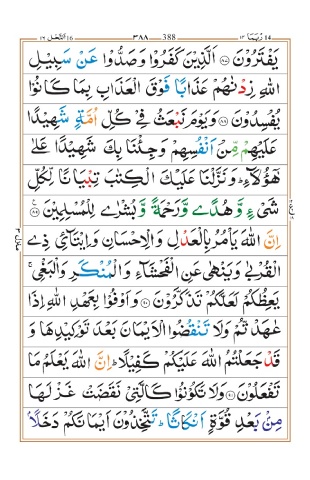 النحل ١٦ 16 ٣٨٨ 388 ربما ١٤ 14
يَفْتَرُوْنَ ۝٨٧ اَلَّذِيْنَ كَفَرُوْا وَصَدُّوْا عَنْ سَبِيْلِ
اللّٰهِ زِدْنٰهُمْ عَذَابًا فَوْقَ الْعَذَابِ بِمَا كَانُوْا
يُفْسِدُوْنَ ۝٨٨ وَيَوْمَ نَبْعَثُ فِيْ كُلِّ اُمَّةٍ شَهِيْدًا
عَلَيْهِمْ مِّنْ اَنْفُسِهِمْ وَجِئْنَا بِكَ شَهِيْدًا عَلٰى
هٰٓؤُلَآءِ ؕ وَنَزَّلْنَا عَلَيْكَ الْكِتٰبَ تِبْيَانًا لِّكُلِّ
شَيْءٍ وَّهُدًى وَّرَحْمَةً وَّبُشْرٰى لِلْمُسْلِمِيْنَ ۝٨٩
اِنَّ اللّٰهَ يَاْمُرُ بِالْعَدْلِ وَالْاِحْسَانِ وَاِيْتَآئِ ذِي
الْقُرْبٰى وَيَنْهٰى عَنِ الْفَحْشَآءِ وَالْمُنْكَرِ وَالْبَغْيِ ۚ
يَعِظُكُمْ لَعَلَّكُمْ تَذَكَّرُوْنَ ۝٩٠ وَاَوْفُوْا بِعَهْدِ اللّٰهِ اِذَا
عٰهَدْتُّمْ وَلَا تَنْقُضُوا الْاَيْمَانَ بَعْدَ تَوْكِيْدِهَا وَ
قَدْ جَعَلْتُمُ اللّٰهَ عَلَيْكُمْ كَفِيْلًا ؕ اِنَّ اللّٰهَ يَعْلَمُ مَا
تَفْعَلُوْنَ ۝٩١ وَلَا تَكُوْنُوْا كَالَّتِيْ نَقَضَتْ غَزْلَهَا
مِنْۢ بَعْدِ قُوَّةٍ اَنْكَاثًا ؕ تَتَّخِذُوْنَ اَيْمَانَكُمْ دَخَلًۢا